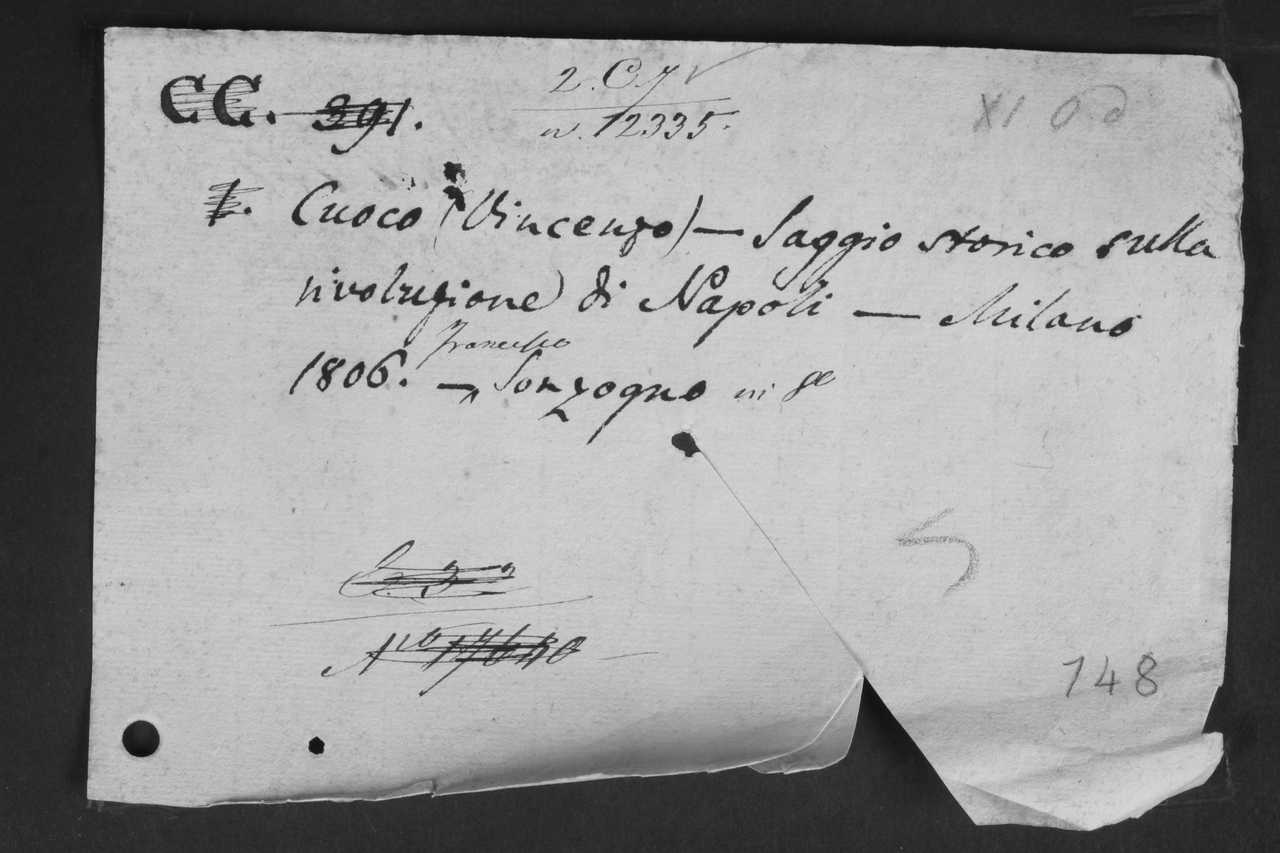 CC. 391.
2. C. 7
n. 12335.
XI O d
I. Cuoco (Vincenzo) — Saggio storico sulla
rivoluzione di Napoli — Milano
Francesco
1806. — Sonzogno in 8º
148